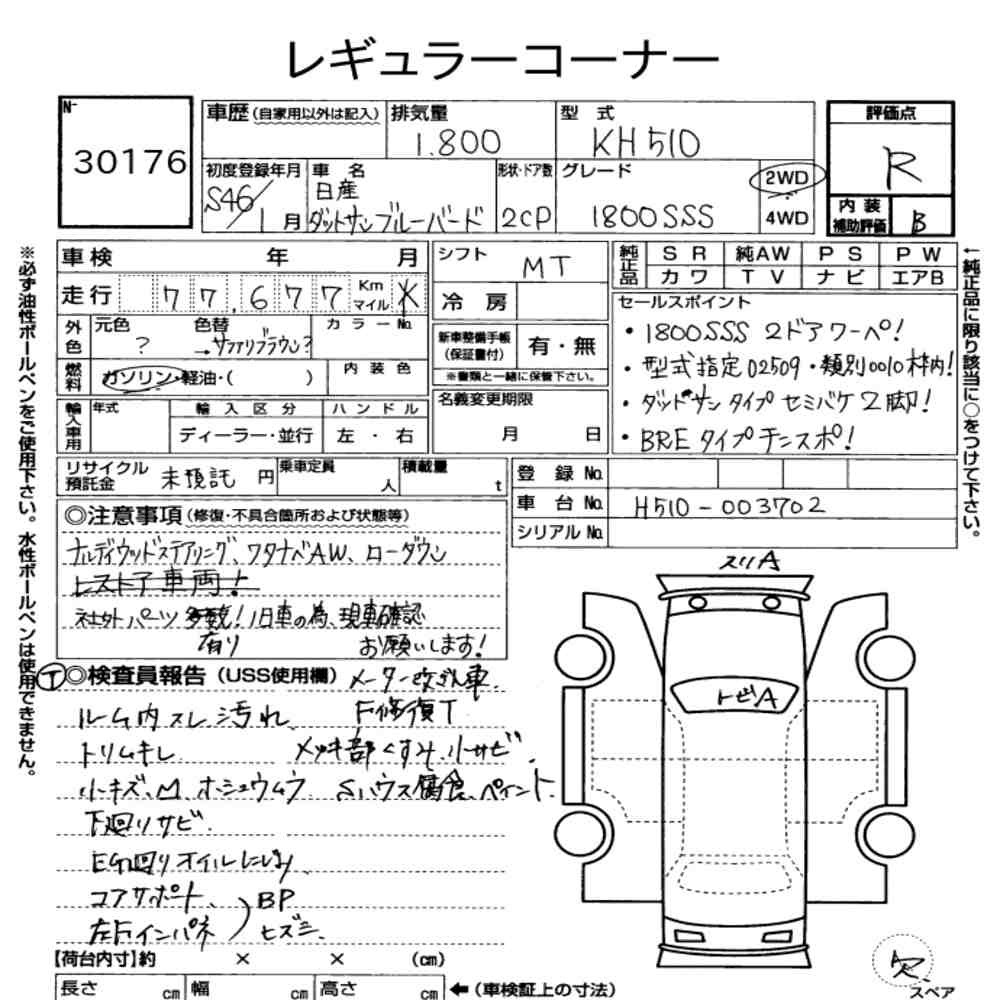 レギュラーコーナー
N-
30176
車歴(自家用以外は記入)
排気量
1.800
型式
KH510
評価点
R
初度登録年月
S46/1月
車名
日産
ダットサンブルーバード
形状・ドア数
2CP
グレード
1800SSS
2WD
4WD
内装
補助評価
B
※必ず油性ボールペンをご使用下さい。水性ボールペンは使用できません。
車検 年 月
走行 77,677 Km マイル
外色
元色
?
色替
→サファリブラウン?
カラーNo.
燃料
ガソリン・軽油・( )
内装色
輸入車用
年式
輸入区分
ディーラー・並行
ハンドル
左・右
シフト
MT
冷房
新車整備手帳
(保証書付)
有・無
※書類と一緒に保管下さい。
名義変更期限
月 日
純正品
SR 純AW PS PW
カワ TV ナビ エアB
セールスポイント
・1800SSS 2ドアクーペ!
・型式指定02509・類別0010枠内!
・ダットサンタイプ セミバケ2脚!
・BREタイプチンスポ!
←純正品に限り該当に○をつけて下さい。
リサイクル預託金
未預託 円
乗車定員
人
積載量
t
登録No.
車台No.
H510-003702
シリアルNo.
◎注意事項(修復・不具合箇所および状態等)
ナルディウッドステアリング、ワタナベAW、ローダウン
レストア車両!
社外パーツ多数!旧車の為、現車確認
有り お願いします!
◎検査員報告(USS使用欄) メーター改ざん車.
ルーム内スレ汚れ F修復T
トリムキレ メッキ部くすみ、小サビ
小キズ、M、ホシュウムラ Sハウス腐食、ペイント
下廻りサビ
EG廻りオイルにじみ
コアサポート、
左右インパネ
BP
ヒズミ
スリA
トビA
【荷台内寸】約 × × (cm)
長さ cm
幅 cm
高さ cm
←(車検証上の寸法)
スペア